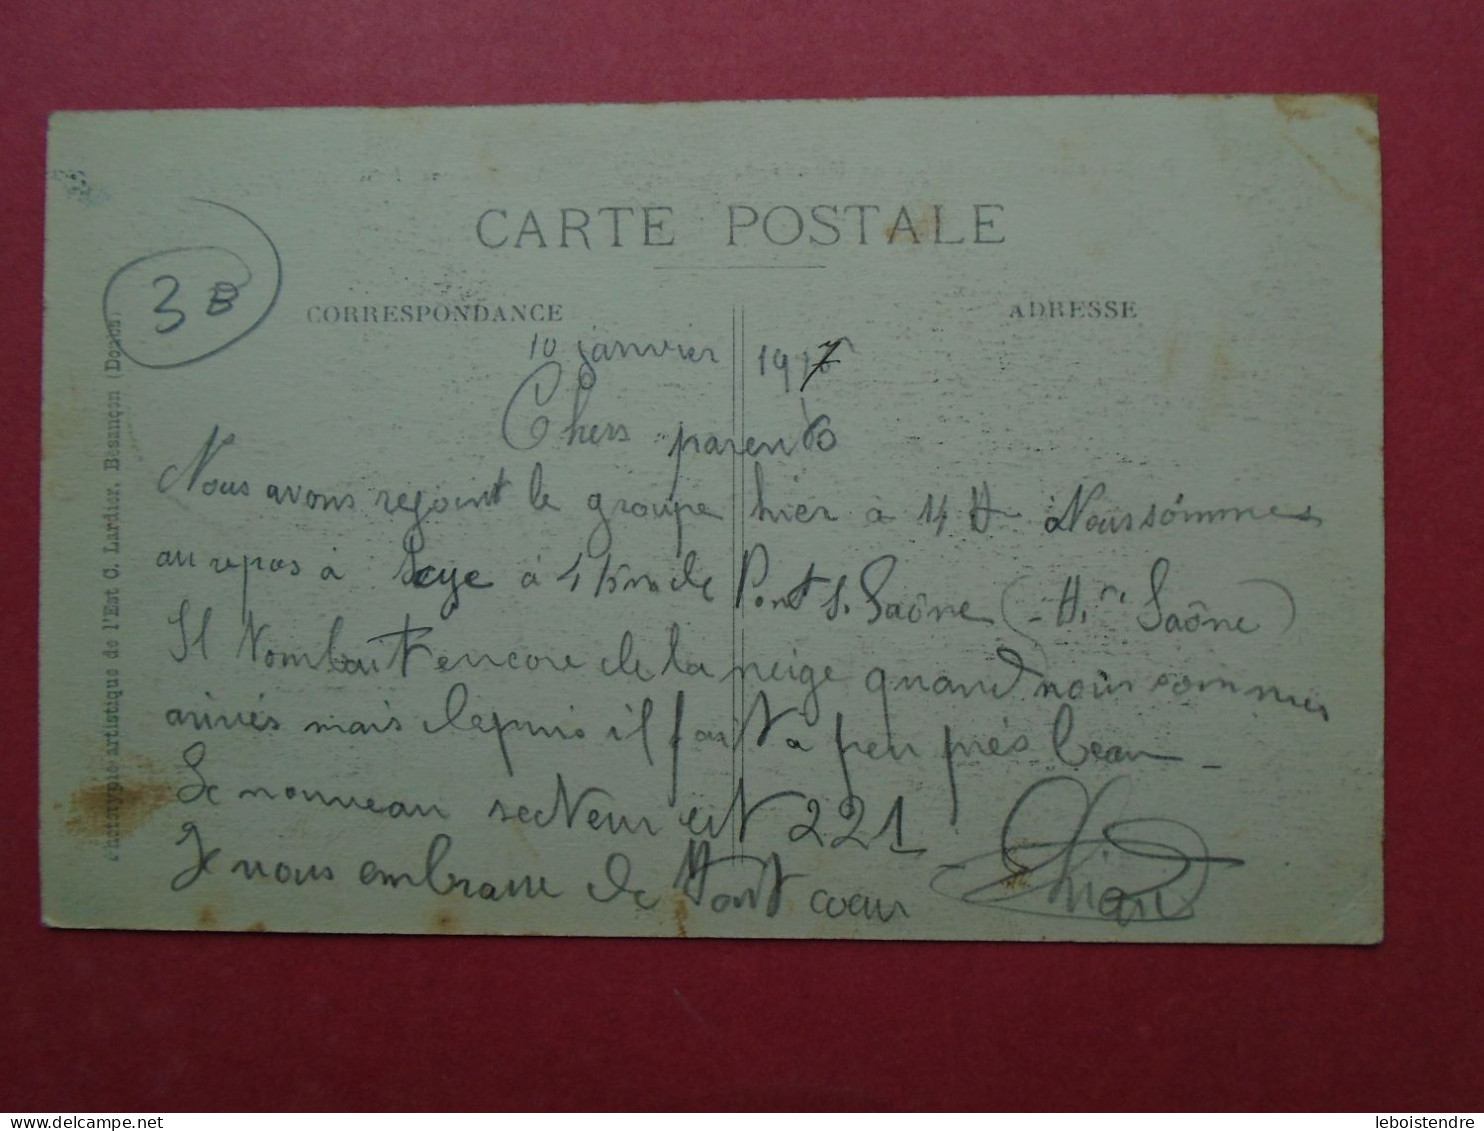 CARTE POSTALE
3 B
CORRESPONDANCE
ADRESSE
10 janvier 1917
Chers parents
Nous avons rejoint le groupe hier à 4 H Nous sommes
au repos à Scye à 4 Km de Pont s. Saône (Hte Saône)
Il tombait encore de la neige quand nous sommes
arrivés mais depuis il fait à peu près beau _
Le nouveau secteur est 221
Je vous embrasse de tout coeur
Phototypie artistique de l'Est C. Lardier, Besançon (Doubs)
leboistendre